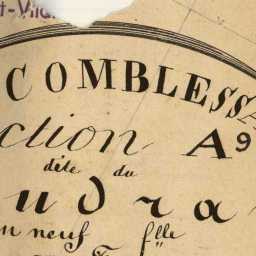 COMBLESSA
ction A9
dite du
udra
un neuf flle